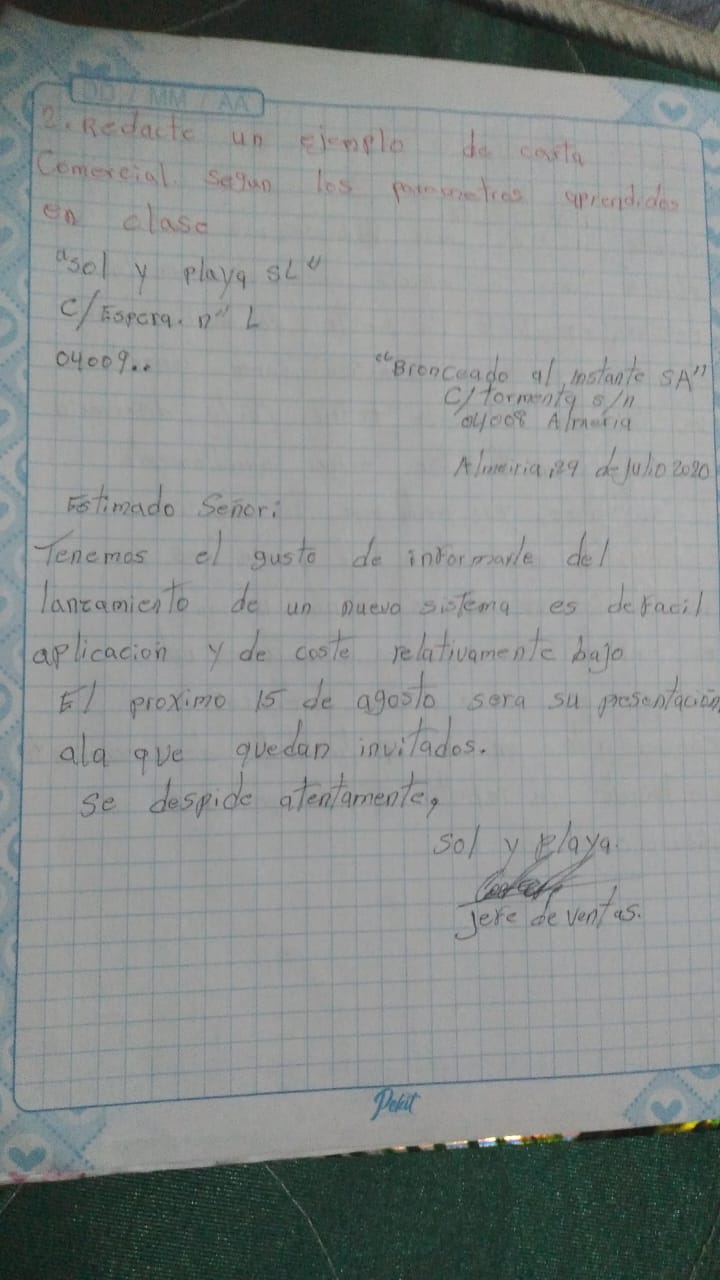 DD / MM / AA
2. Redacte un ejemplo de carta
Comercial segun los parametros aprendidos
en clase
"Sol y playa SL"
C/Espera. nº L
04009..
"Bronceado al instante SA"
C/tormenta s/n
04008 Almeria
Almeiria, 29 de julio 2020
Estimado Señor:
Tenemos el gusto de informarle del
lanzamiento de un nuevo sistema es de facil
aplicacion y de coste relativamente bajo
El proximo 15 de agosto sera su presentación
ala que quedan invitados.
se despide atentamente,
Sol y Playa.
Jefe de ventas.
Pekit